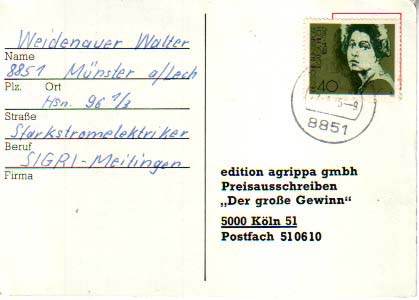 Weidenauer Walter
Name
8851 Münster a/Lech
Plz. Ort
Hsn. 96 1/3
Straße
Starkstromelektriker
Beruf
SIGRI-Meitingen
Firma
40
8851
edition agrippa gmbh
Preisausschreiben
„Der große Gewinn“
5000 Köln 51
Postfach 510610